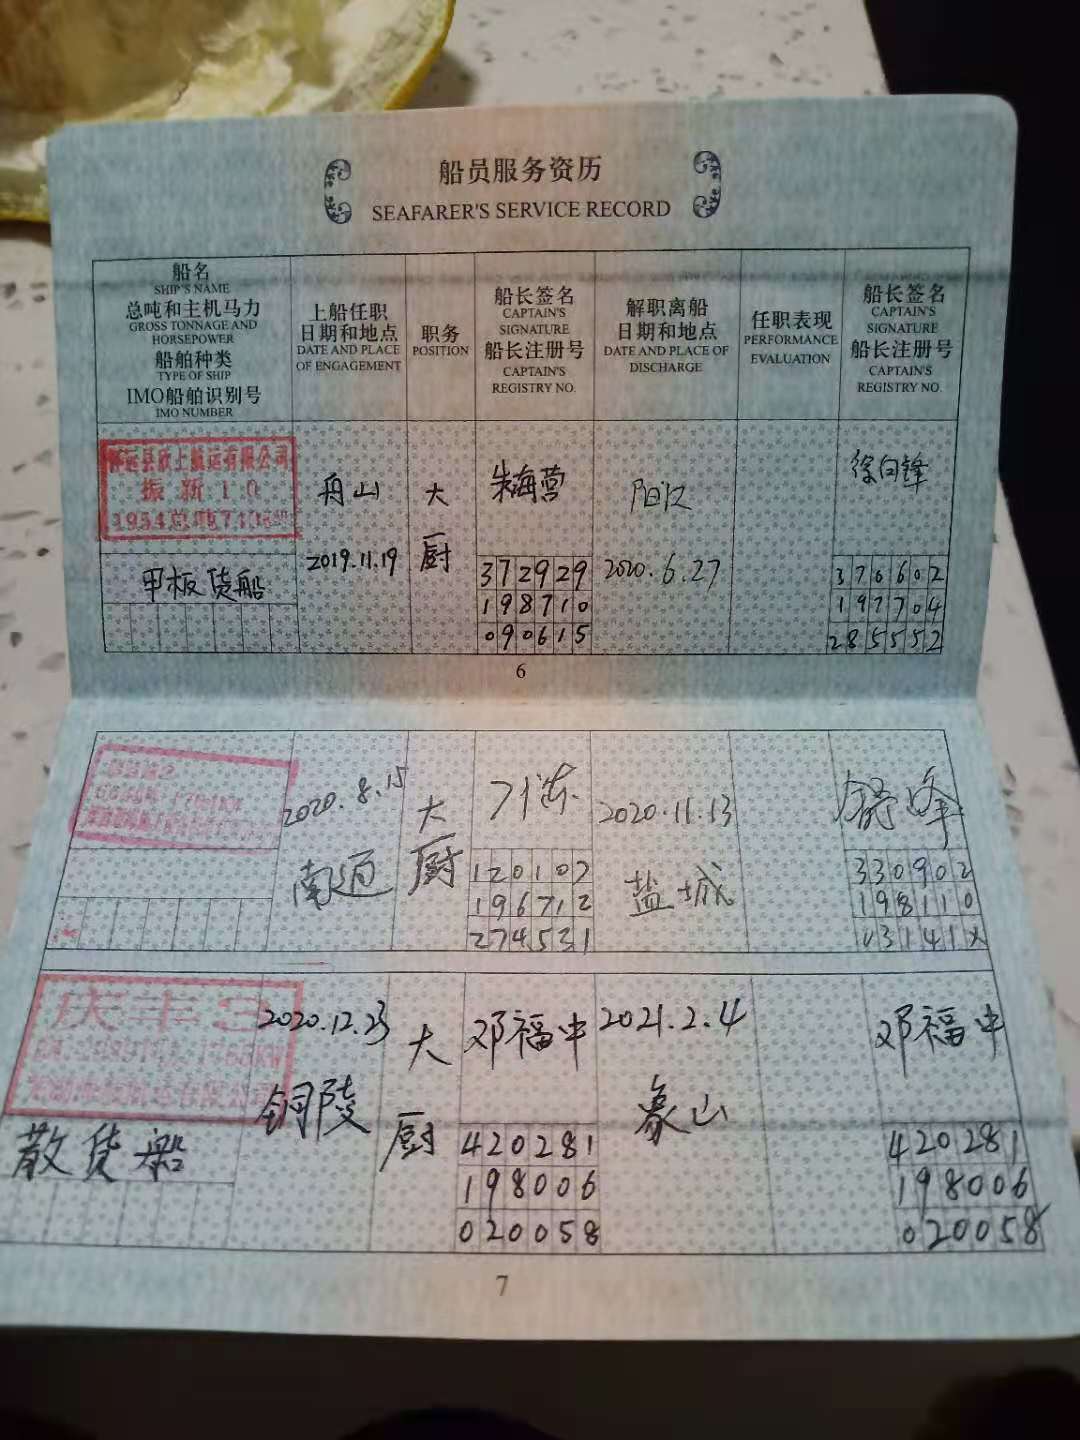 船员服务资历
SEAFARER'S SERVICE RECORD
船名
SHIP'S NAME
总吨和主机马力
GROSS TONNAGE AND
HORSEPOWER
船舶种类
TYPE OF SHIP
IMO船舶识别号
IMO NUMBER
上船任职
日期和地点
DATE AND PLACE
OF ENGAGEMENT
职务
POSITION
船长签名
CAPTAIN'S
SIGNATURE
船长注册号
CAPTAIN'S
REGISTRY NO.
解职离船
日期和地点
DATE AND PLACE OF
DISCHARGE
任职表现
PERFORMANCE
EVALUATION
船长签名
CAPTAIN'S
SIGNATURE
船长注册号
CAPTAIN'S
REGISTRY NO.
航运有限公司
振新10
1954总吨
甲板货船
舟山
2019.11.19
大
厨
朱海营
372929
198710
090615
2020.6.27
徐向锋
370602
197704
285552
6
2020.8.15
南通
大
厨
120107
196712
274531
2020.11.13
盐城
330902
198110
03141X
庆丰3
航运有限公司
散货船
2020.12.23
铜陵
大
厨
邓福中
420281
198006
020058
2021.2.4
象山
邓福中
420281
198006
020058
7